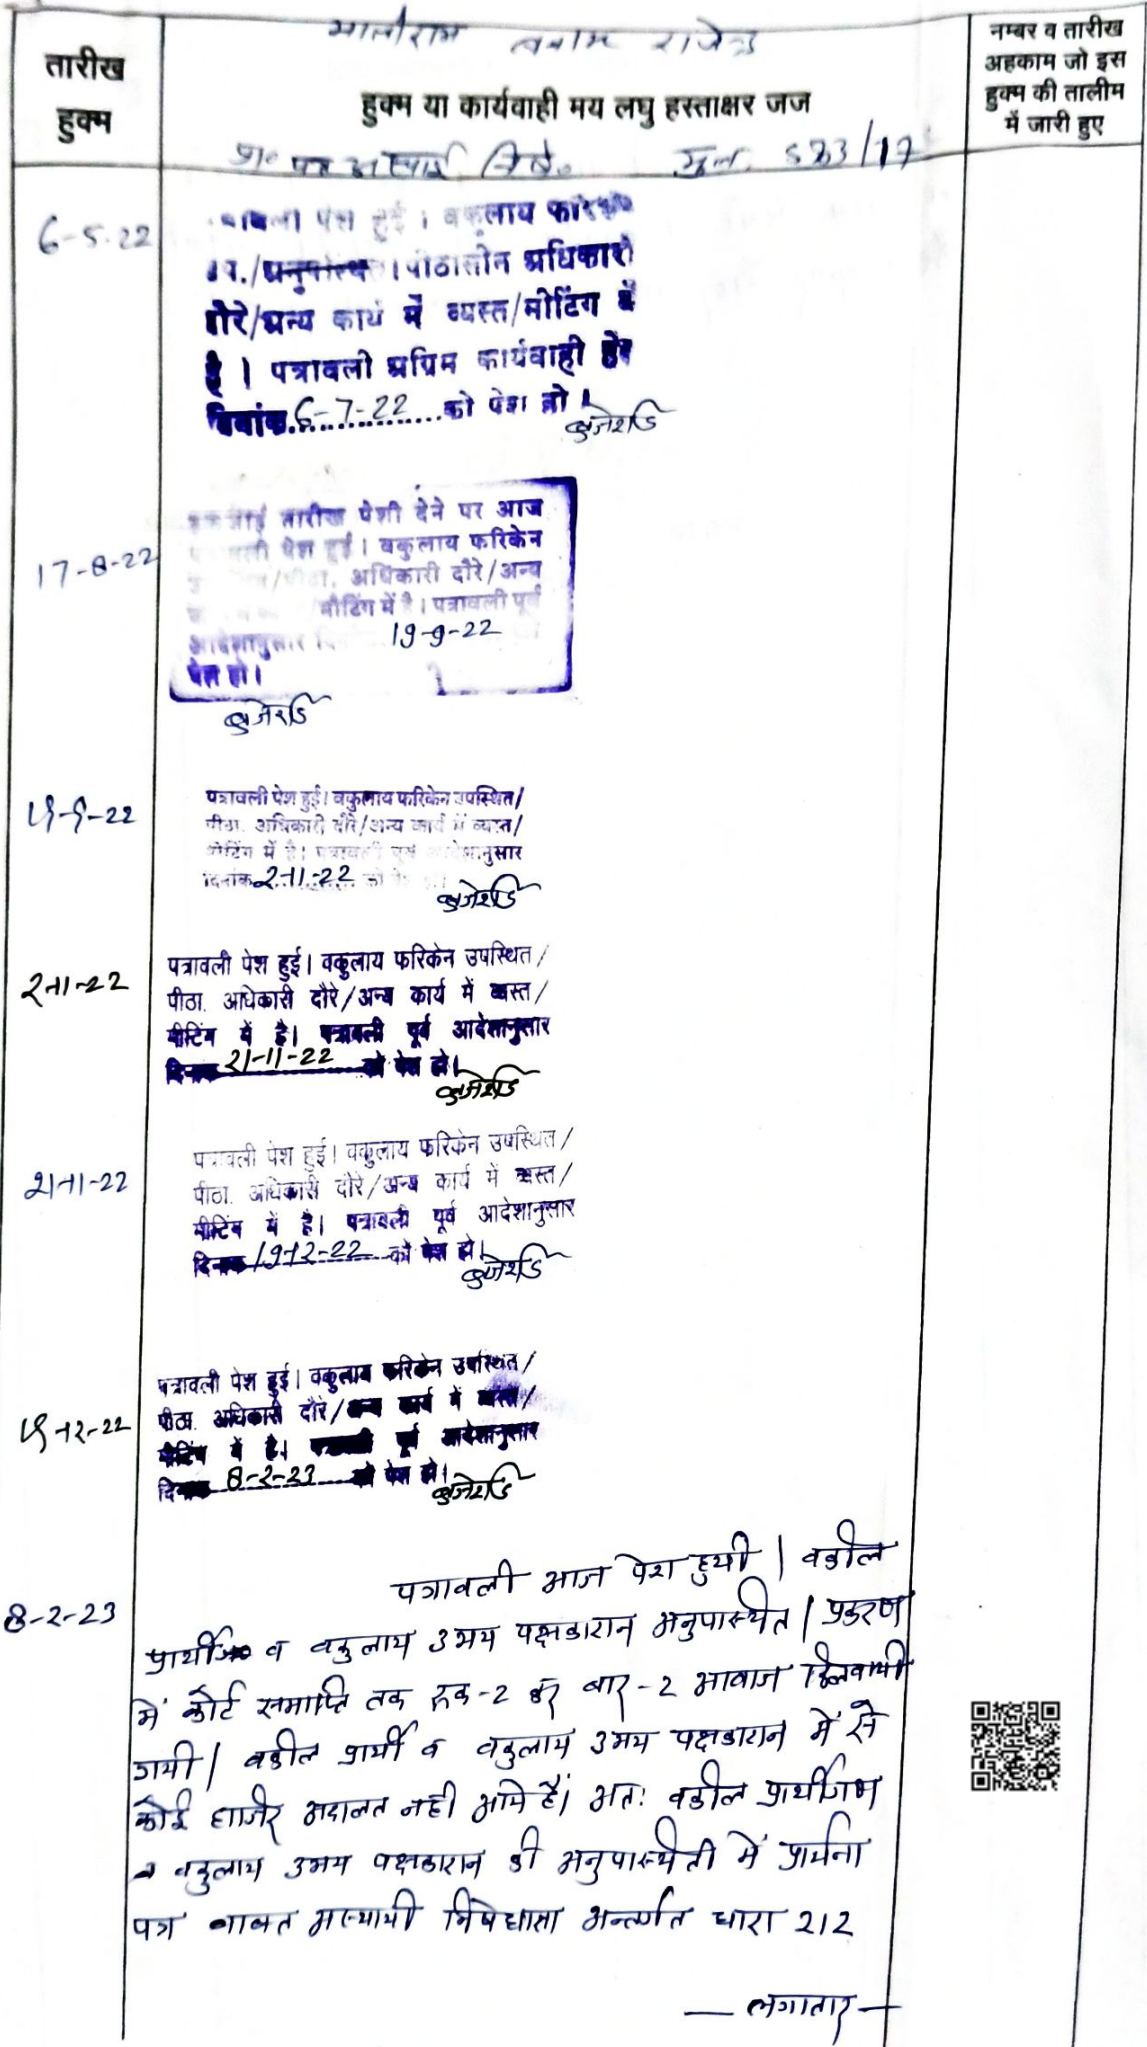 मालीराम बनाम राजेन्द्र
तारीख
हुक्म
हुक्म या कार्यवाही मय लघु हस्ताक्षर जज
नम्बर व तारीख
अहकाम जो इस
हुक्म की तालीम
में जारी हुए
प्रा० पत्र अस्थाई निषे०
6-5-22
पेश हुई । वकुलाय
पीठासीन अधिकारी
दौरे/अन्य कार्य में व्यस्त/मीटिंग में
है । पत्रावली अग्रिम कार्यवाही हेतु
दिनांक 6-7-22 को पेश हो ।
17-8-22
तारीख पेशी देने पर आज
पेश हुई । वकुलाय फरिकेन
अधिकारी दौरे/अन्य
/मीटिंग में है । पत्रावली पूर्व
आदेशानुसार 19-9-22
पेश हो ।
19-9-22
पत्रावली पेश हुई। वकुलाय फरिकेन उपस्थित/
पीठा. अधिकारी दौरे/अन्य कार्य में व्यस्त/
मीटिंग में है। पत्रावली पूर्व आदेशानुसार
दिनांक 2-11-22 को पेश हो।
2-11-22
पत्रावली पेश हुई। वकुलाय फरिकेन उपस्थित/
पीठा. अधिकारी दौरे/अन्य कार्य में व्यस्त/
मीटिंग में है। पत्रावली पूर्व आदेशानुसार
दिनांक 21-11-22 को पेश हो।
21-11-22
पत्रावली पेश हुई। वकुलाय फरिकेन उपस्थित/
पीठा. अधिकारी दौरे/अन्य कार्य में व्यस्त/
मीटिंग में है। पत्रावली पूर्व आदेशानुसार
दिनांक 19-12-22 को पेश हो।
19-12-22
पत्रावली पेश हुई। वकुलाय फरिकेन उपस्थित/
पीठा. अधिकारी दौरे/अन्य कार्य में व्यस्त/
मीटिंग में है। पत्रावली पूर्व आदेशानुसार
दिनांक 8-2-23 को पेश हो।
8-2-23
पत्रावली आज पेश हुयी | वकील
प्रार्थीगण व वकुलाय उभय पक्षकारान अनुपास्थित | प्रकरण
में कोर्ट समाप्ति तक रूक-2 कर बार-2 आवाज दिलवायी
गयी | वकील प्रार्थी व वकुलाय उभय पक्षकारान में से
कोई हाजिर अदालत नही आये हैं। अतः वकील प्रार्थीगण
व वकुलाय उभय पक्षकारान की अनुपास्थिती में प्रार्थना
पत्र बाबत अस्थायी निषेधाज्ञा अन्तर्गत धारा 212
— लगातार —